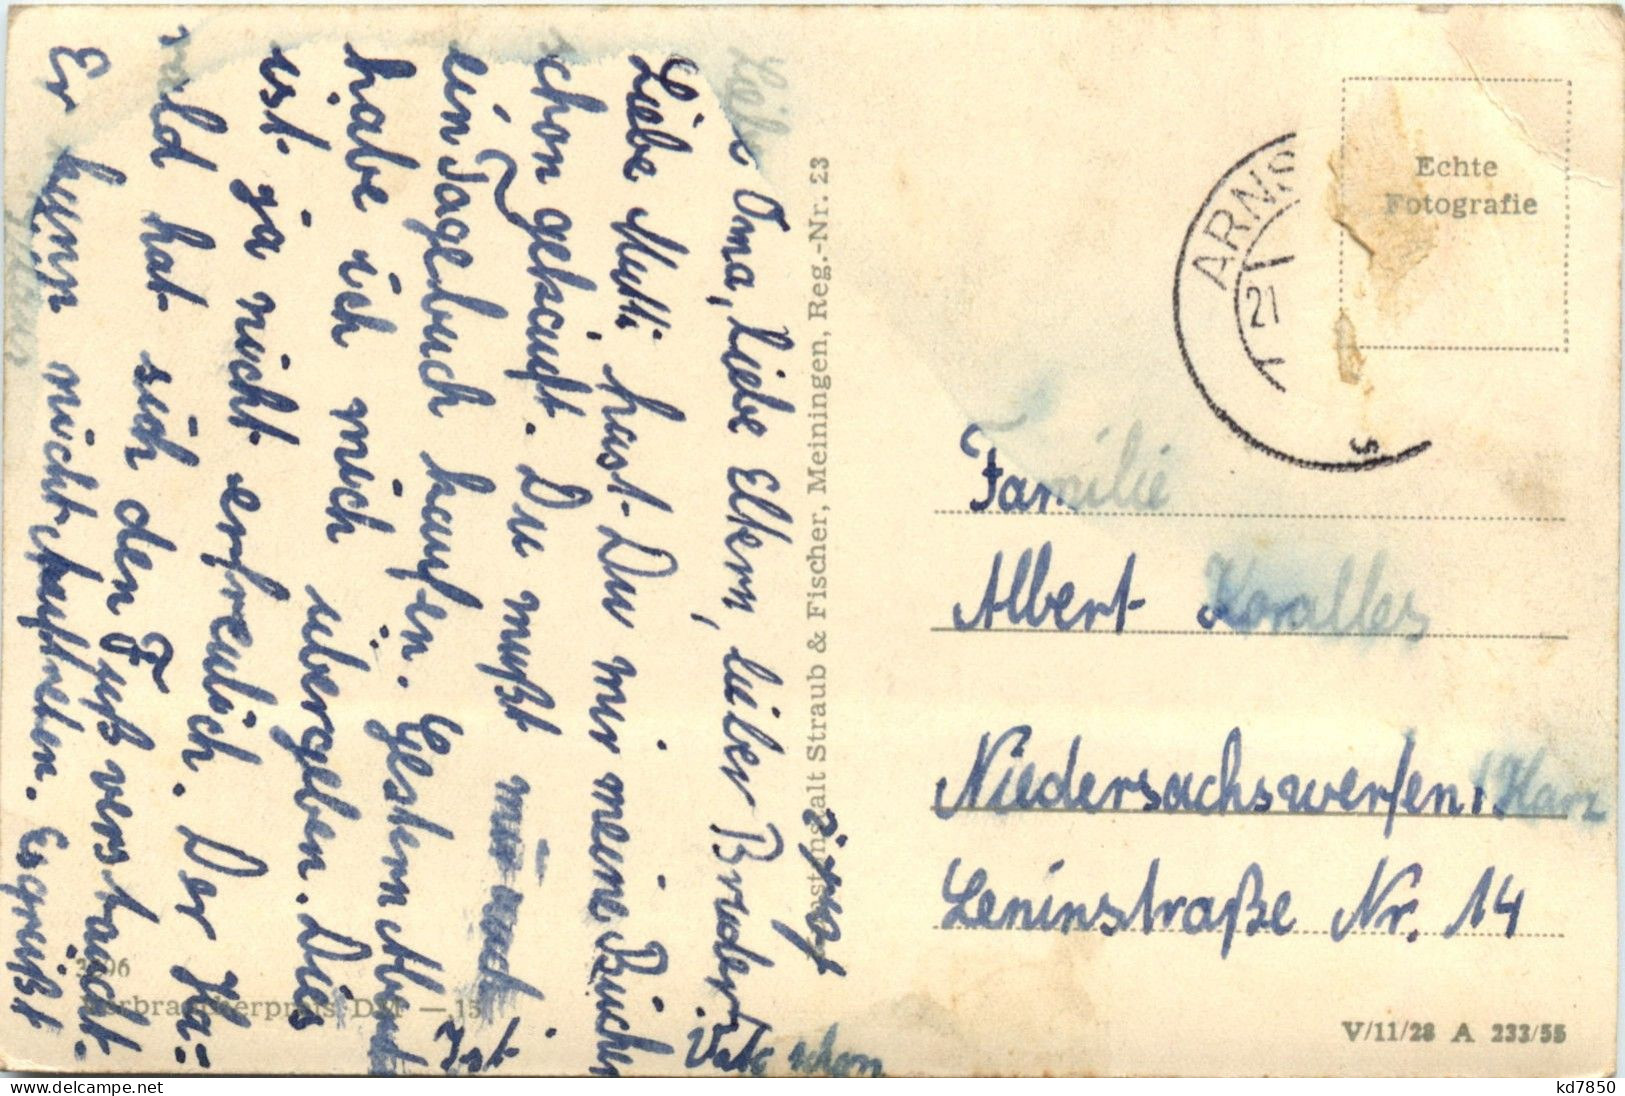 Liebe Oma, Liebe Eltern, lieber Bruder!
Liebe Mutti hast Du mir meine Bücher
schon gekauft. Du mußt mir auch
ein Tagebuch kaufen. Gestern Abend
habe ich mich übergeben. Dies
ist ja nicht erfreulich. Der Ha=
rald hat sich den Fuß verstaucht.
Er kann nicht auftreten. Es grüßt
Ist
Vati schon
Kunstanstalt Straub & Fischer, Meiningen, Reg.-Nr. 23
Verbraucherpreis DM —,15
Echte
Fotografie
ARNS
21
Familie
Albert Koralles
Niedersachswerfen / Harz
Leninstraße Nr. 14
V/11/28 A 233/55
kd7850